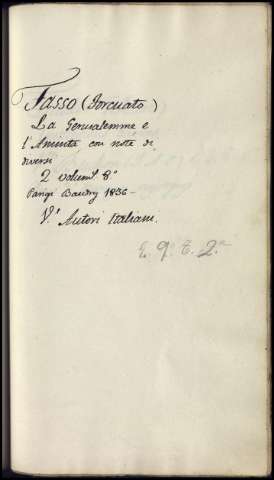 Tasso (Torcuato)
La Gerusalemme e
l'Aminta con note di
diversi
2 volumi 8º
Parigi Baudry 1836 -
V.i Autori Italiani.
E. 9. E. 2.a